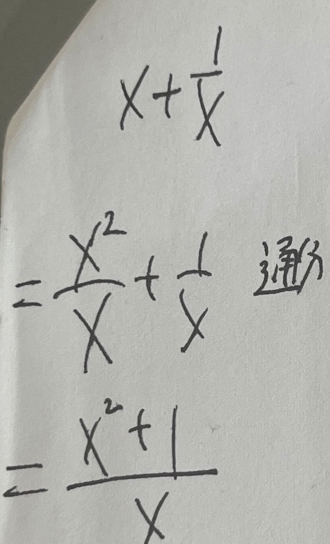 x + 1/x
= x²/x + 1/x 通分
= (x² + 1)/x